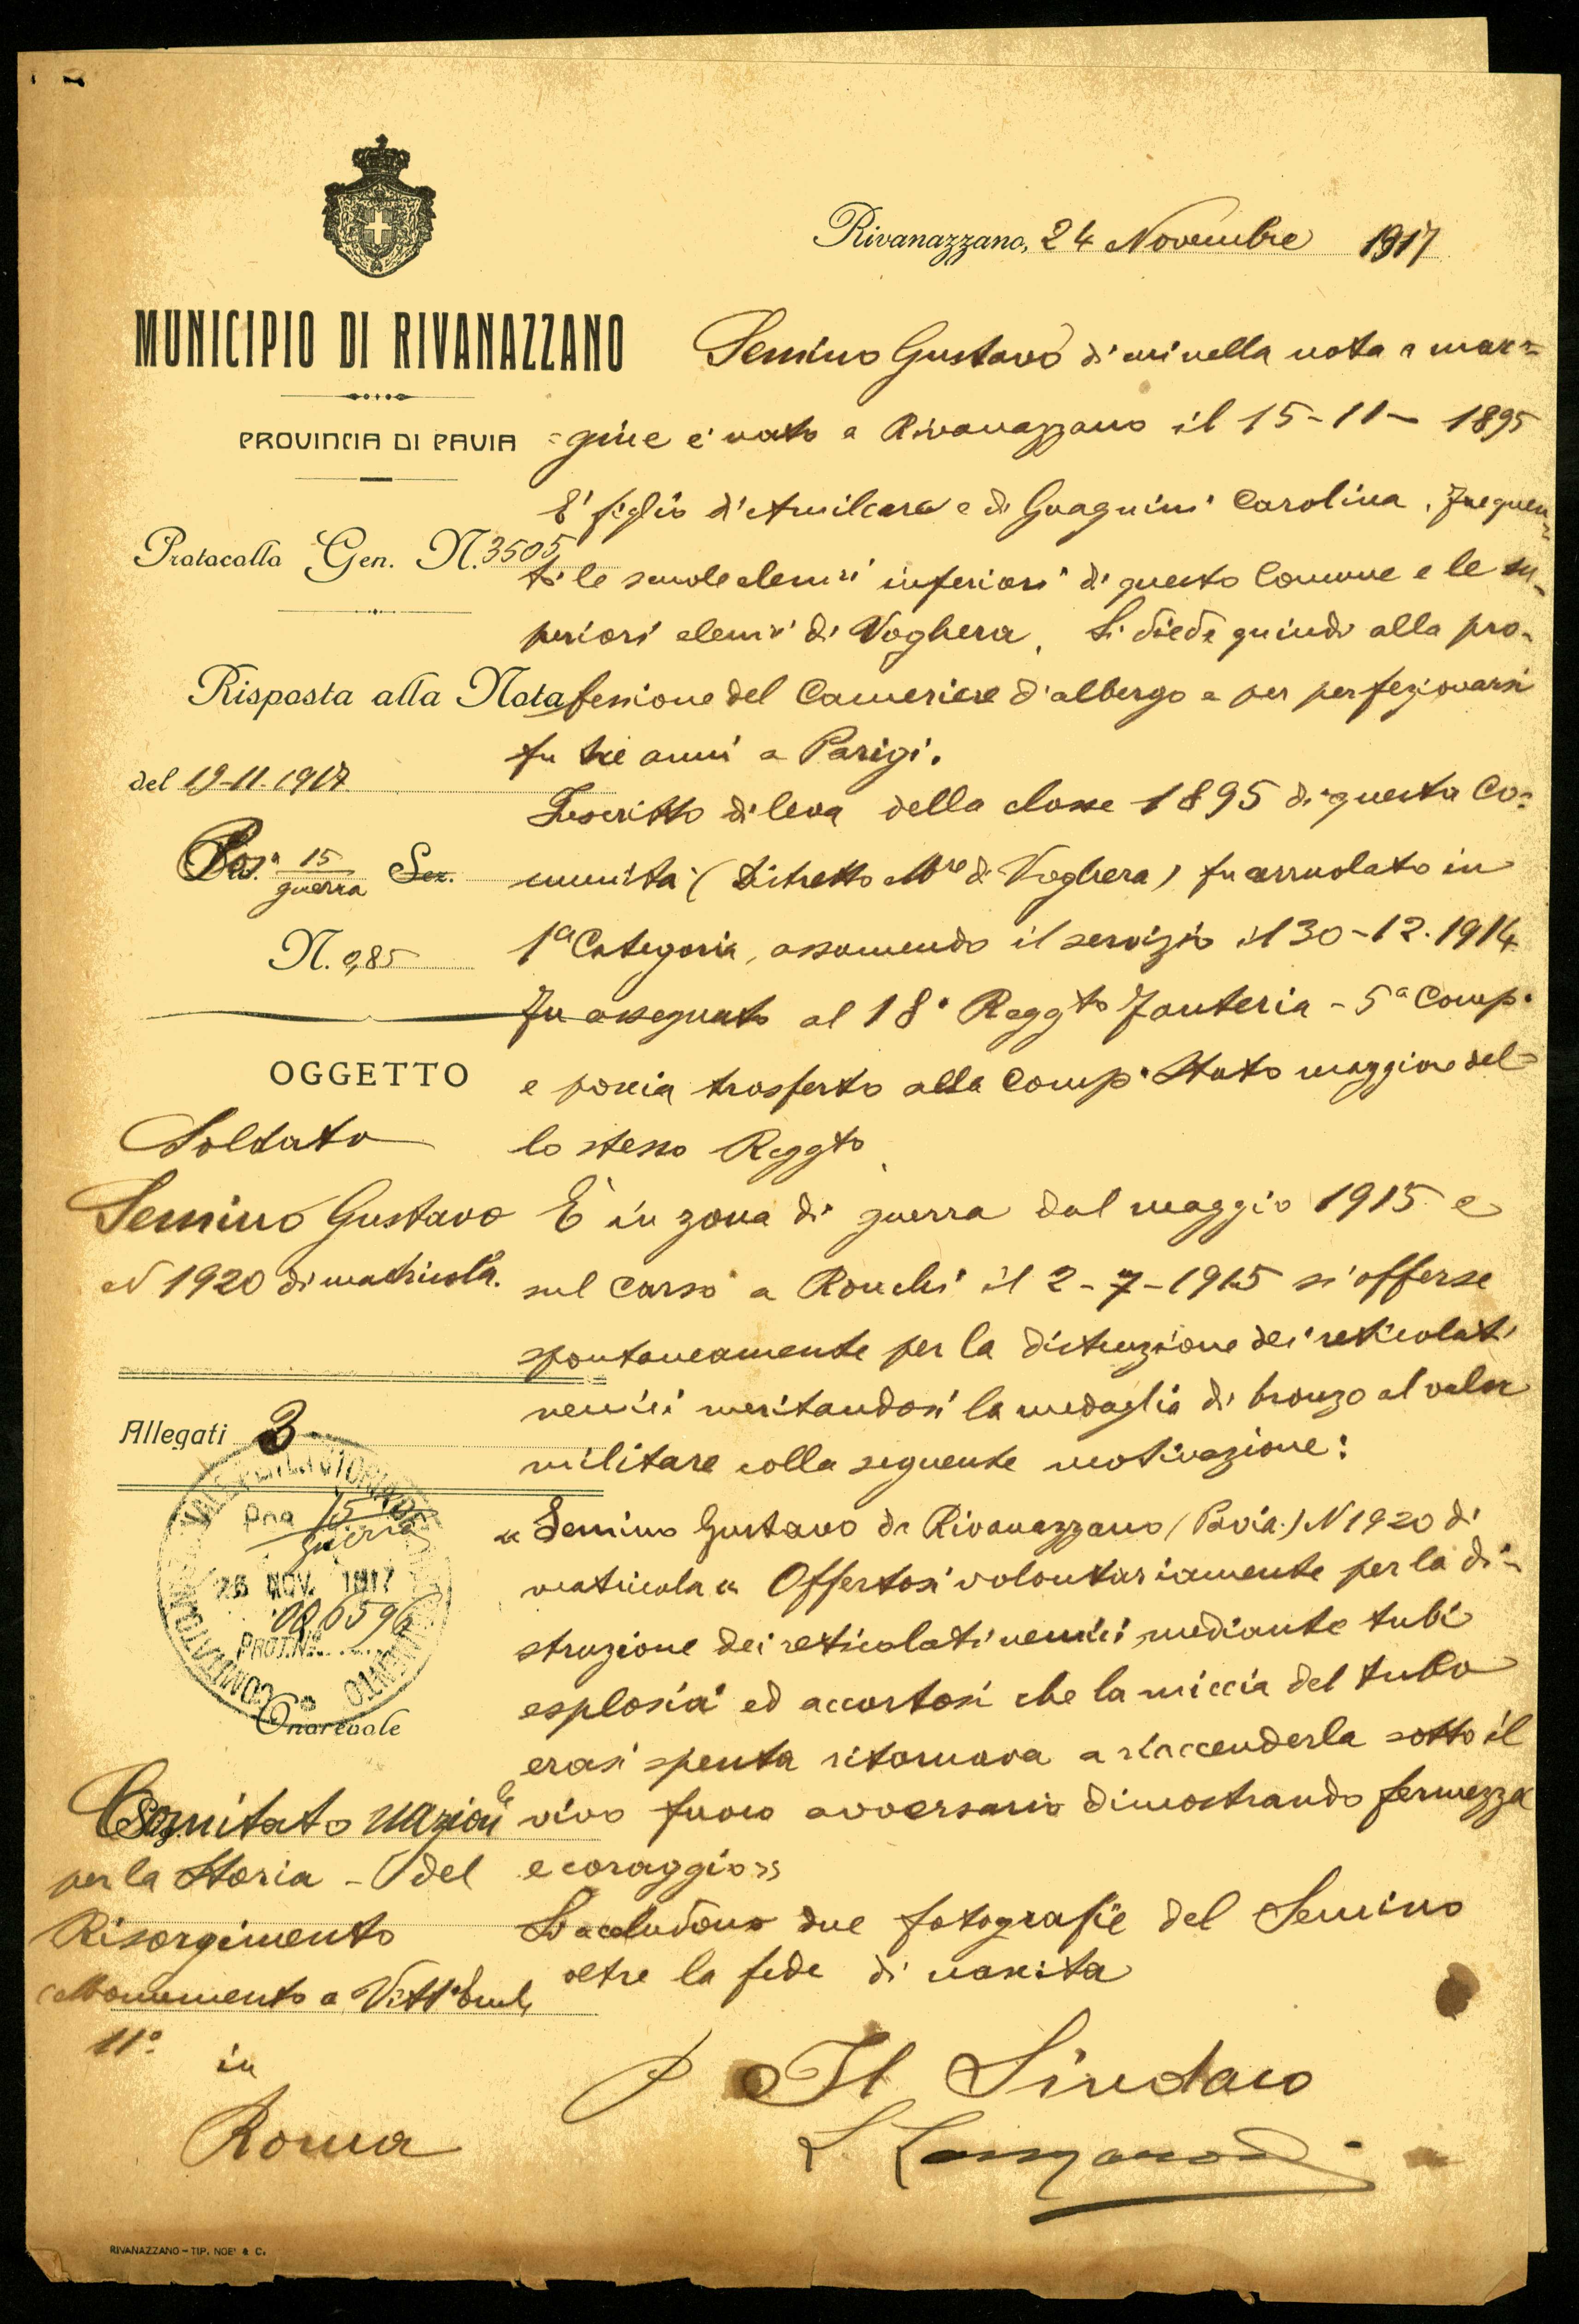 Rivanazzano, 24 Novembre 1917
MUNICIPIO DI RIVANAZZANO
PROVINCIA DI PAVIA
Protocollo Gen. N. 3505
Risposta alla Nota
del 19-11-1917
Pos.a 15 guerra Sez.
N. 985
OGGETTO
Soldato
Semino Gustavo
N 1920 di matricola.
Allegati 3
COMITATO NAZIONALE PER LA STORIA DEL RISORGIMENTO
Pna 15 guerra
26 NOV. 1917
006596
PROT. No
Onorevole
Comitato Nazionle
per la Storia - del
Risorgimento
Monumento a Vitt° Eml,
11°. in
Roma
Semino Gustavo di cui nella nota a mar=
=gine è nato a Rivanazzano il 15-11-1895
E' figlio d'Amilcare e di Guagnini Carolina. Frequen=
tò le scuole elemri inferiori di questo Comune e le su-
periori elemri di Voghera. Si diede quindi alla pro-
fessione del Cameriere d'albergo e per perfezionarsi
fu tre anni a Parigi.
Inscritto di leva della classe 1895 di questa Co=
munità (Distretto Mre di Voghera) fu arruolato in
1a Categoria, assumendo il servizio il 30-12-1914
Fu assegnato al 18° Reggto Fanteria - 5a Comp.
e poscia trasferto alla Comp. Stato maggiore del=
lo stesso Reggto.
È in zona di guerra dal maggio 1915 e
sul Carso a Ronchi il 2-7-1915 si offerse
spontaneamente per la distruzione dei reticolati
nemici meritandosi la medaglia di bronzo al valor
militare colla seguente motivazione:
« Semino Gustavo da Rivanazzano (Pavia) N 1920 di
matricola « Offertosi volontariamente per la di=
struzione dei reticolati nemici, mediante tubi
esplosivi ed accortosi che la miccia del tubo
erasi spenta ritornava a riaccenderla sotto il
vivo fuoco avversario dimostrando fermezza
e coraggio »
Si accludono due fotografie del Semino
oltre la fede di nascita
P Il Sindaco
RIVANAZZANO - TIP. NOE' & C.